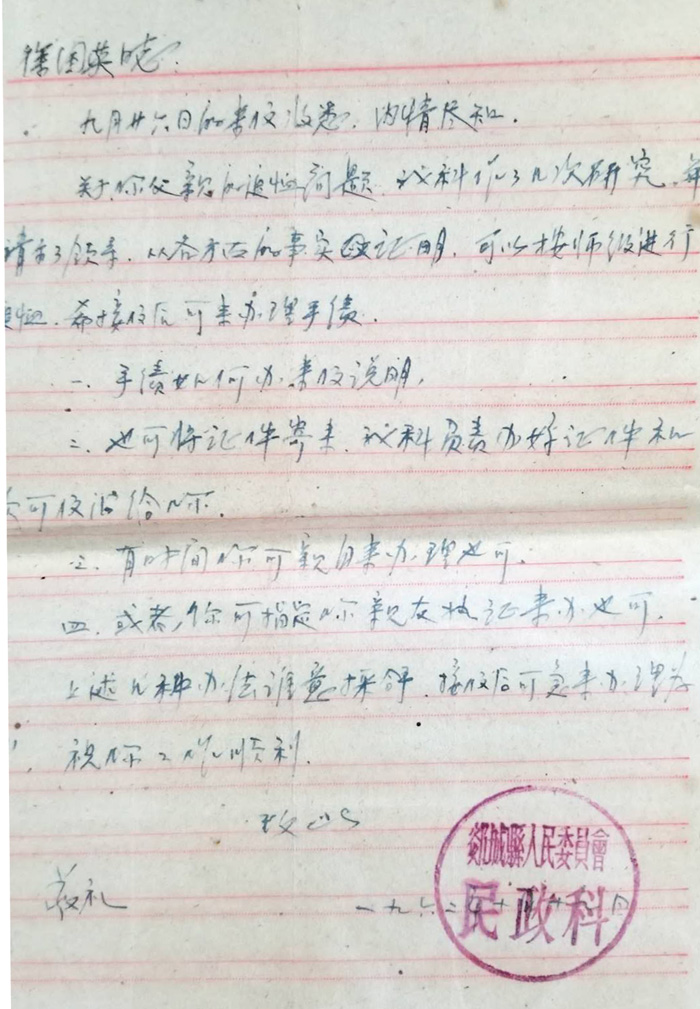 徐国英同志:
九月廿六日的来信收悉,内情尽知。
关于你父亲的追恤问题,我科作了几次研究,并
请示了领导,从各方面的事实证明,可以按师级进行
追恤,希接信后可来办理手续。
一、手续如何办,来信说明,
二、也可将证件寄来,我科负责办好证件和
款可仅沿给你。
三、有时间你可亲自来办理也可。
四、或者,你可指定你亲友持证来办也可。
上述几种办法谁意採纳,接信后可急来办理为
祝你工作顺利。
致以
敬礼
一九六二年十月十九日
郯城縣人民委員會
民政科